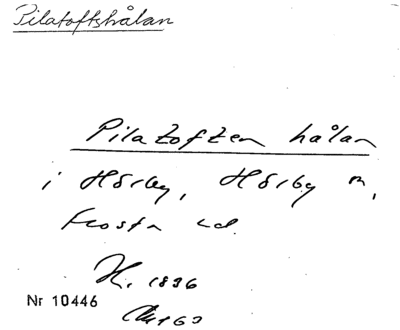 Pilatoftshålan
Pilatoften hålan
i Hörby, Hörby
Frosta
H. 1836
Nr 10446